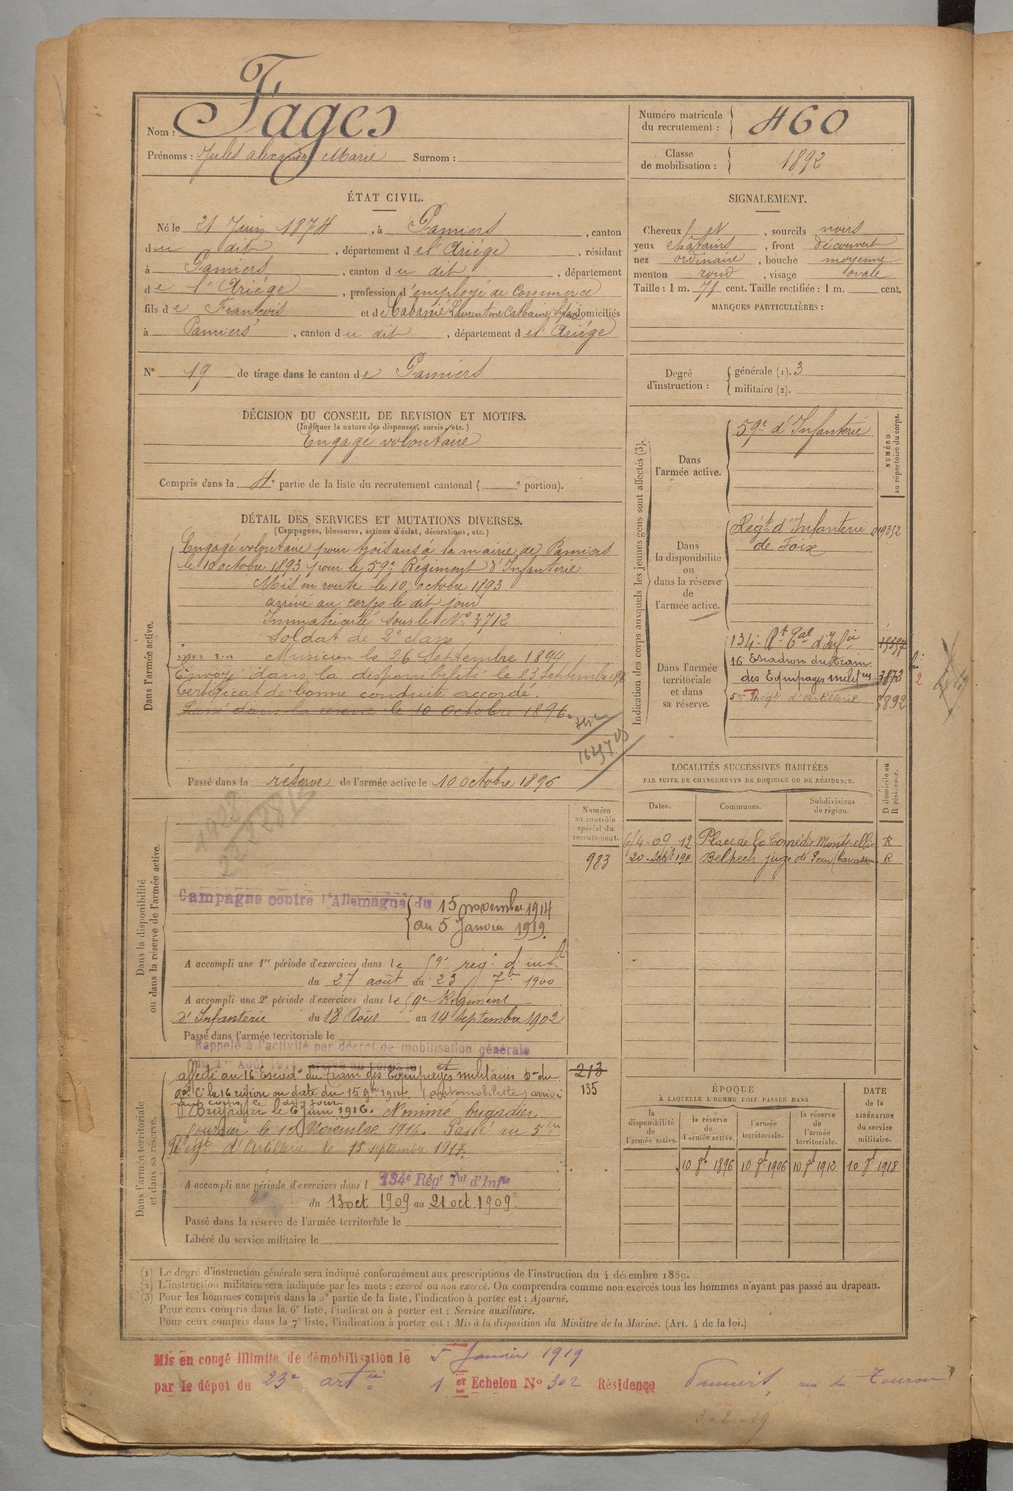 Nom : Fages
Numéro matricule du recrutement : 460
Prénoms : Jules Marie Surnom :
Classe de mobilisation : 1892
ÉTAT CIVIL.
Né le 21 Juin 1874, à Pamiers, canton
du dit, département de l'Ariége, résidant
à Pamiers, canton du dit, département
de l'Ariége, profession d'employé de Commerce
fils de et de domiciliés
à Pamiers, canton du dit, département de l'Ariége
N° 19 de tirage dans le canton de Pamiers
SIGNALEMENT.
Cheveux et, sourcils noirs
yeux châtains, front découvert
nez ordinaire, bouche moyenne
menton rond, visage ovale
Taille : 1 m. 71 cent. Taille rectifiée : 1 m. cent.
MARQUES PARTICULIÈRES :
Degré d'instruction : générale (1). 3
militaire (2).
DÉCISION DU CONSEIL DE REVISION ET MOTIFS.
(Indiquer la nature des dispenses, sursis, etc.)
Engagé volontaire
Compris dans la 4e partie de la liste du recrutement cantonal ( e portion).
DÉTAIL DES SERVICES ET MUTATIONS DIVERSES.
(Campagnes, blessures, actions d'éclat, décorations, etc.)
Dans l'armée active.
Engagé volontaire pour trois ans à la mairie de Pamiers
le 10 octobre 1893 pour le 59e Régiment d'Infanterie
Mis en route le 10 octobre 1893
arrivé au corps le dit jour
Immatriculé sous le N° 3712
Soldat de 2e classe
Musicien le 26 Septembre 1894
Envoyé dans la disponibilité le
Certificat de bonne conduite accordé.
Passé dans la réserve le 10 octobre 1896
Passé dans la réserve de l'armée active le 10 octobre 1896
Indication des corps auxquels les jeunes gens sont affectés (3).
NUMÉRO au répertoire du corps.
Dans l'armée active.
59e d'Infanterie
Dans la disponibilité ou dans la réserve de l'armée active.
Régt d'Infanterie
de Foix
Dans l'armée territoriale et dans sa réserve.
134e Rt Tal d'Infie
16 Escadron du train
des Equipages milires 3873
5e Régt d'artillerie
LOCALITÉS SUCCESSIVES HABITÉES
PAR SUITE DE CHANGEMENTS DE DOMICILE OU DE RÉSIDENCE.
Dates. Communes. Subdivisions de région. D domicile ou R résidence.
Place de la Comédie Montpellier R
Belpech juge de Paix Carcassonne R
Dans la disponibilité ou dans la réserve de l'armée active.
Numéro au contrôle spécial du recrutement.
983
Campagne contre l'Allemagne du 15 novembre 1914
au 5 Janvier 1919.
A accompli une 1re période d'exercices dans le 59e rég. d'inf.
du 27 août au 23 7bre 1900
A accompli une 2e période d'exercices dans le 59e Régiment
d'Infanterie du 18 Août au 14 Septembre 1902
Passé dans l'armée territoriale le
Rappelé à l'activité par décret de mobilisation générale
Dans l'armée territoriale et dans sa réserve.
affecté au 16 Escadon du train des Equipages militaires
213
135
Brigadier le 6 Juin 1916. Nommé brigadier
fourrier le Novembre 1916. Passé au 5e
Régt d'Artillerie le 15 septembre 1917.
A accompli une période d'exercices dans l 134e Régt Tal d'Infie
du 13 oct 1909 au 21 oct 1909.
Passé dans la réserve de l'armée territoriale le
Libéré du service militaire le
ÉPOQUE
À LAQUELLE L'HOMME DOIT PASSER DANS
la disponibilité de l'armée active. la réserve de l'armée active. l'armée territoriale. la réserve de l'armée territoriale.
DATE de la LIBÉRATION du service militaire.
10 8bre 1896 10 8bre 1906 10 8bre 1912 10 8bre 1918
(1) Le degré d'instruction générale sera indiqué conformément aux prescriptions de l'instruction du 4 décembre 1889.
(2) L'instruction militaire sera indiquée par les mots : exercé ou non exercé. On comprendra comme non exercés tous les hommes n'ayant pas passé au drapeau.
(3) Pour les hommes compris dans la 5e partie de la liste, l'indication à porter est : Ajourné.
Pour ceux compris dans la 6e liste, l'indication à porter est : Service auxiliaire.
Pour ceux compris dans la 7e liste, l'indication à porter est : Mis à la disposition du Ministre de la Marine. (Art. 4 de la loi.)
Mis en congé illimité de démobilisation le 5 Janvier 1919
par le dépôt du 23e artie 1er Echelon N° 302 Résidence Pamiers,